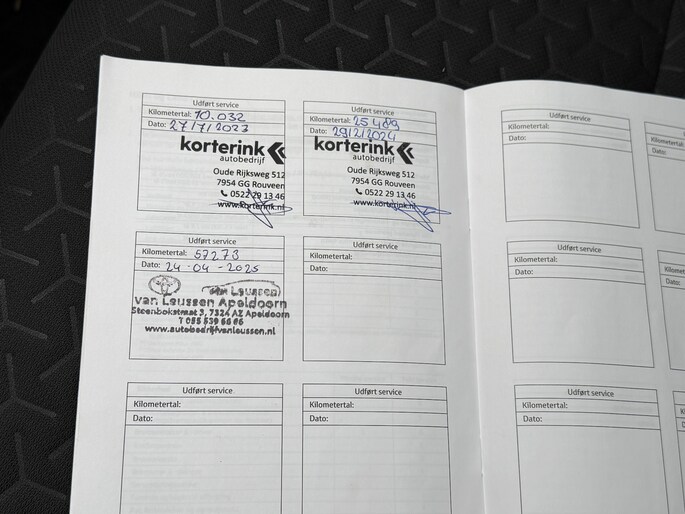 Udført service
Kilometertal: 10.032
Dato: 27/7/2023
korterink
autobedrijf
Oude Rijksweg 512
7954 GG Rouveen
0522 29 13 46
www.korterink.nl
Udført service
Kilometertal: 25489
Dato: 29/2/2024
korterink
autobedrijf
Oude Rijksweg 512
7954 GG Rouveen
0522 29 13 46
www.korterink.nl
Udført service
Kilometertal: 57273
Dato: 24-04-2025
van Leussen
van Leussen Apeldoorn
Steenbokstraat 3, 7324 AZ Apeldoorn
T 055 539 66 66
www.autobedrijfvanleussen.nl
Udført service
Kilometertal:
Dato:
Udført service
Kilometertal:
Dato:
Udført service
Kilometertal:
Dato:
Udført service
Kilometertal:
Dato:
Kilometertal:
Dato:
Udført service
Kilometertal:
Dato:
Udført service
Kilometertal:
Dato: